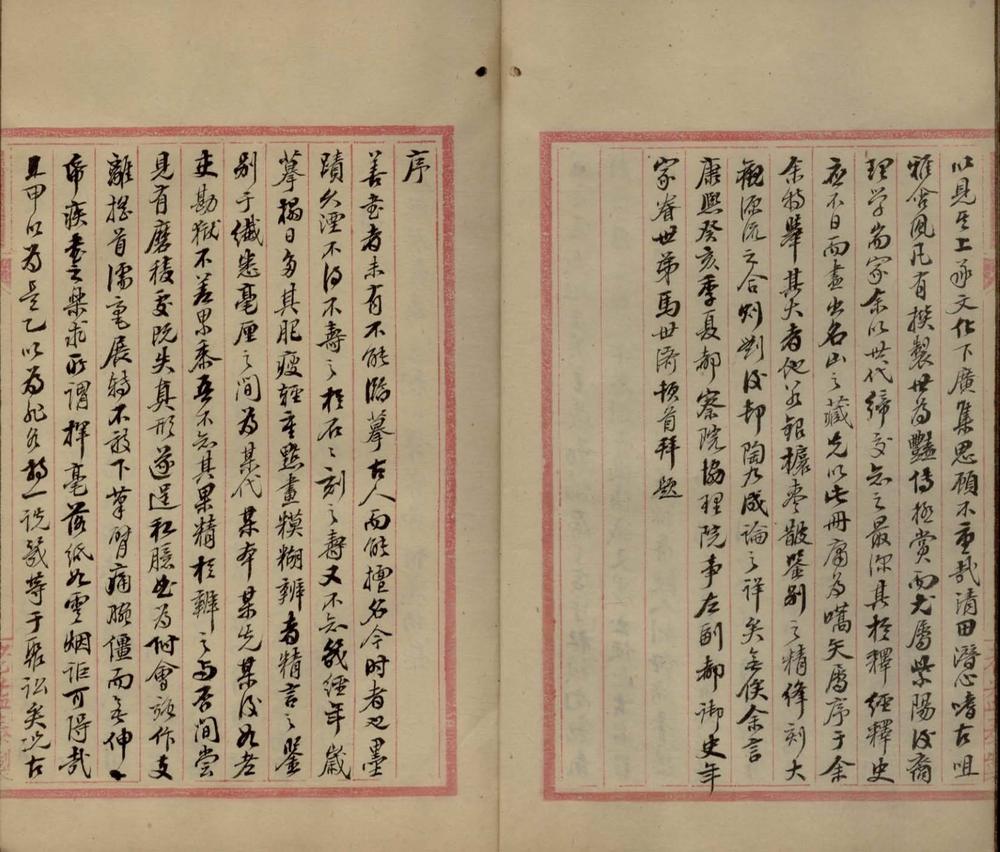 以見其上遂文化下廣集思顧不重哉清田潛心嗜古咀
雅含風凡有撰製世為豔傳極賞而尤屬紫陽後裔
理學嵩家余以世代締交知之最深其於釋經釋史
應不日而盡出名山之藏先以此冊庸為嚆矢屬序于余
余特舉其大者他若銀櫃棗皺鑒別之精鋒刻大
觀源流之合則劉後邨陶九成論之詳矣無俟余言
康熙癸亥季夏都察院協理院事左副都御史年
家眷世弟馬世濟頓首拜題
序
善書者未有不能臨摹古人而能擅名今時者也墨
蹟久湮不得不壽之於石石刻之壽又不知幾經年歲
摹搨日多其肥瘦輕重點畫糢糊辨者精言之鑒
別于纖悉毫厘之間為某代某本某先某後如老
吏勘獄不差累黍吾不知其果精於辨之與否間嘗
見有磨稜委阮失真形遂逞私臆出為附會詭作支
離搖首濡毫展轉不敢下筆臂痛腕僵而無伸
帝疾書之樂求所謂揮毫落紙如雲烟詎可得哉
且甲以為是乙以為非各持一說幾等于聚訟矣況古